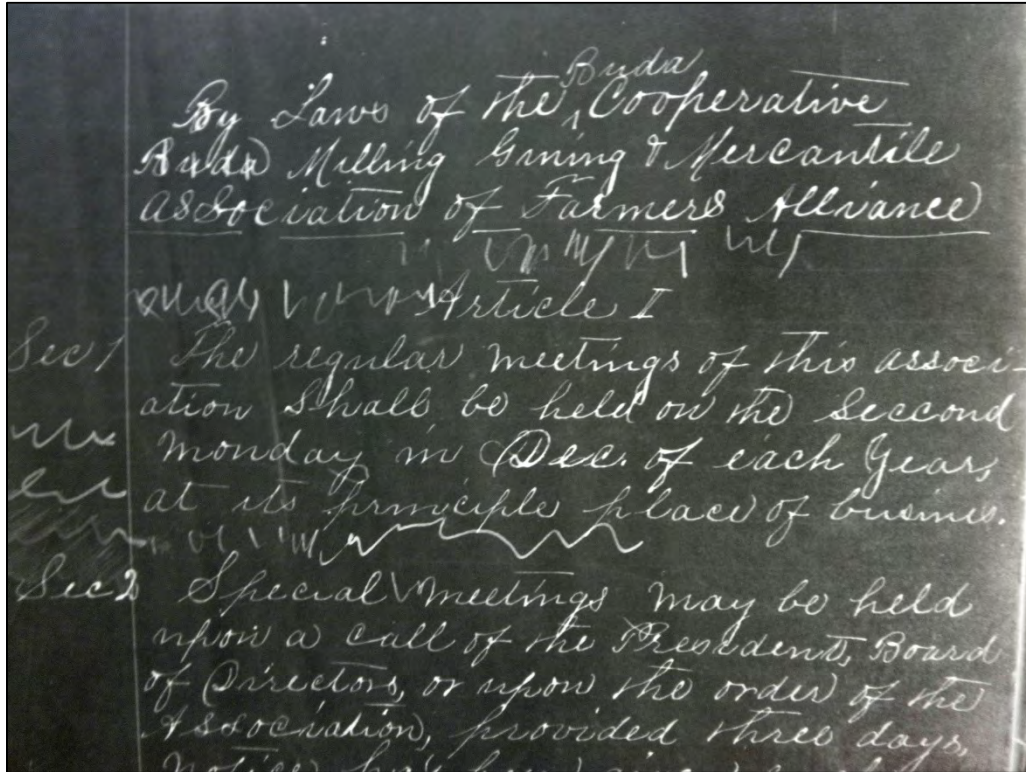 Buda
By Laws of the ^ Cooperative
Buda Milling Gining & Mercantile
association of Farmers Alliance
Article I
Sec 1 The regular meetings of this associ-
ation Shall be held on the Seccond
Monday in Dec. of each Year,
at its principle place of busines.
Sec 2 Special meetings may be held
upon a call of the President, Board
of Directors, or upon the order of the
Association, provided three days,
notice